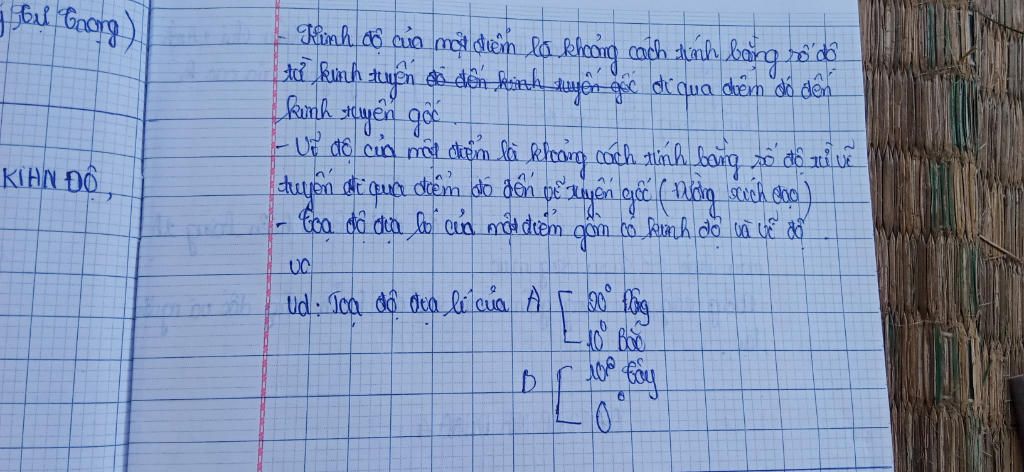 tại trang)
- Kinh độ của một điểm là khoảng cách tính bằng số độ
từ kinh tuyến đó đến kinh tuyến gốc đi qua điểm đó đến
kinh tuyến gốc.
- Vĩ độ của một điểm là khoảng cách tính bằng số độ từ vĩ
KIHN ĐỘ,
tuyến đi qua điểm đó đến vĩ tuyến gốc (đường xích đạo)
- Toạ độ địa lí của một điểm gồm có kinh độ và vĩ độ.
VC
Vd: Toạ độ địa lí của A [ 20° Đông
10° Bắc
D [ 10° Tây
0°